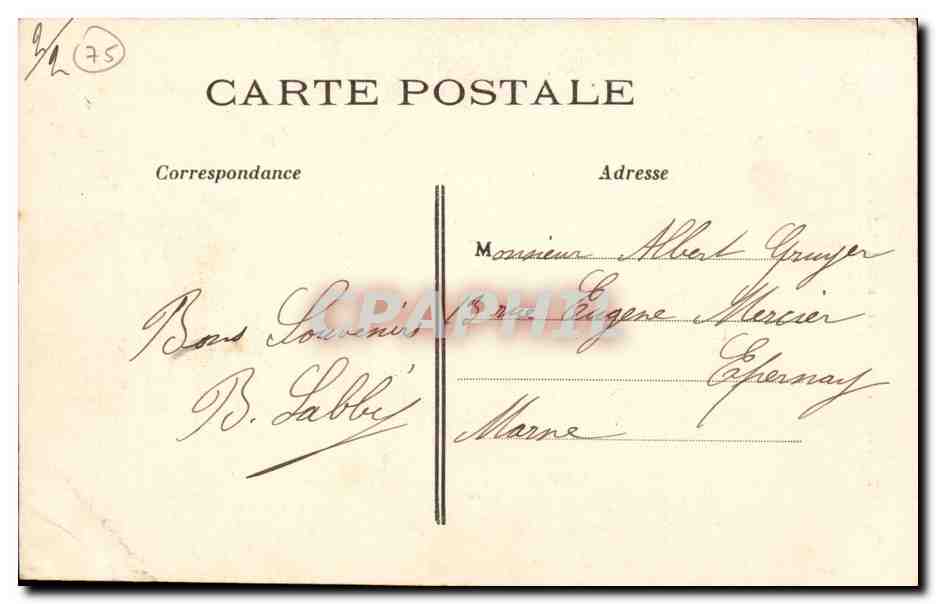 2/2 75
CARTE POSTALE
Correspondance
Adresse
Bons Souvenirs
B. Labbé
Monsieur Albert Gruyer
3 rue Eugene Mercier
Epernay
Marne
CPAPHIL